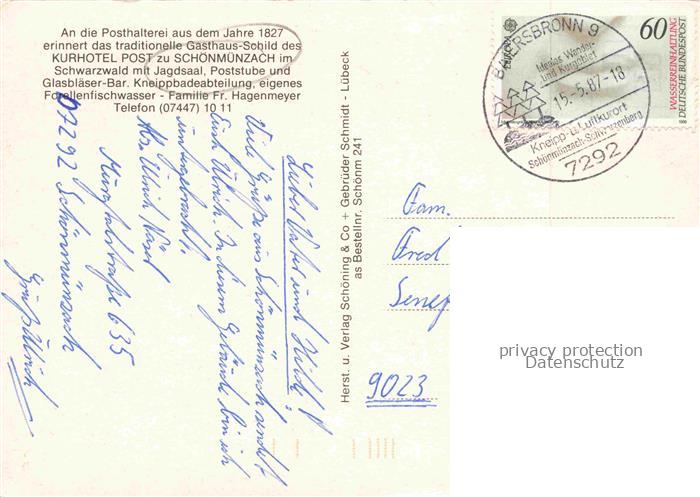 An die Posthalterei aus dem Jahre 1827
erinnert das traditionelle Gasthaus-Schild des
KURHOTEL POST zu SCHÖNMÜNZACH im
Schwarzwald mit Jagdsaal, Poststube und
Glasbläser-Bar. Kneippbadeabteilung, eigenes
Forellenfischwasser - Familie Fr. Hagenmeyer
Telefon (07447) 10 11
Lieber Vater und Hilde!
Viele Grüße aus Schönmünzach sendet
Euch Ulrich. In diesem Gebäude bin ich
untergebracht.
Ulrich
Murgtalstraße 635
D 7292 Schönmünzach
Gruß Ulrich
Herst. u. Verlag Schöning & Co + Gebrüder Schmidt - Lübeck
as Bestellnr. Schönm 241
BAIERSBRONN 9
Ideales Wander-
und Kurgebiet
15.-5.87-18
Kneipp-u. Luftkurort
Schönmünzach-Schwarzenberg
7292
EUROPA
60
WASSERREINHALTUNG
DEUTSCHE BUNDESPOST
Fam.
Fred
9023
privacy protection
Datenschutz